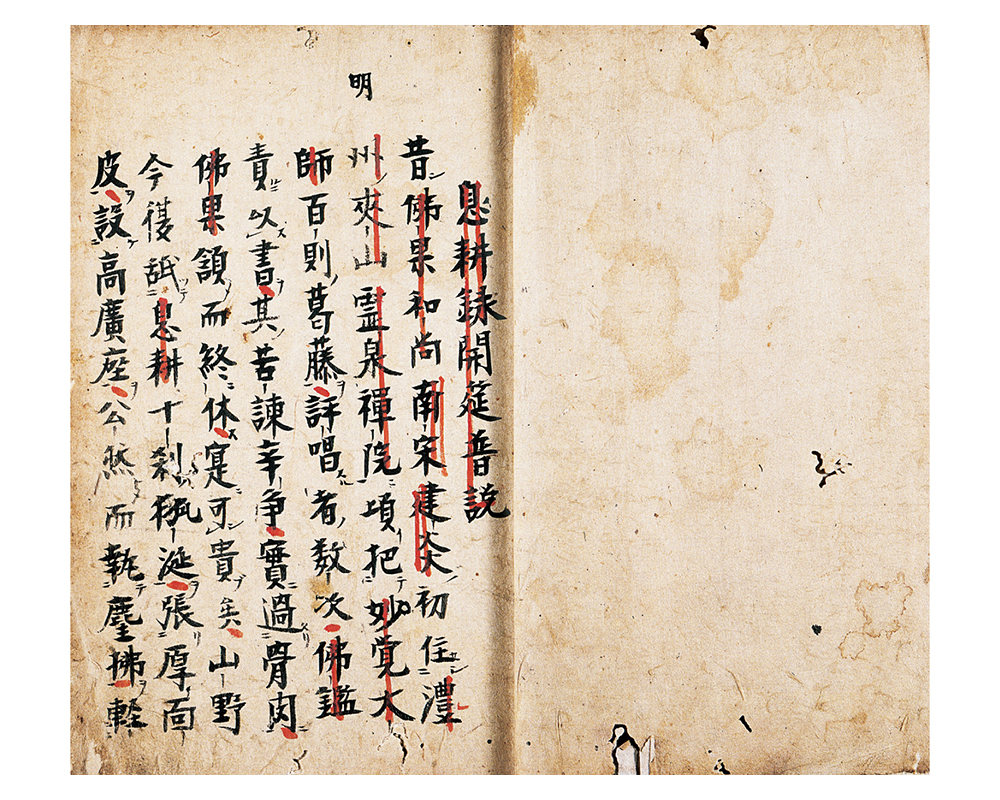 明
息耕録開莚普説
昔佛果和尚南宋建炎初住澧
州夾山霊泉禪院頃把妙覚大
師百則葛藤評唱者数次佛鑑
責以書其苦諫辛争實過骨肉
佛果頷而終休寔可貴矣山野
今復舐息耕十刹涎張厚面
皮設高廣座公然而執麈拂軽